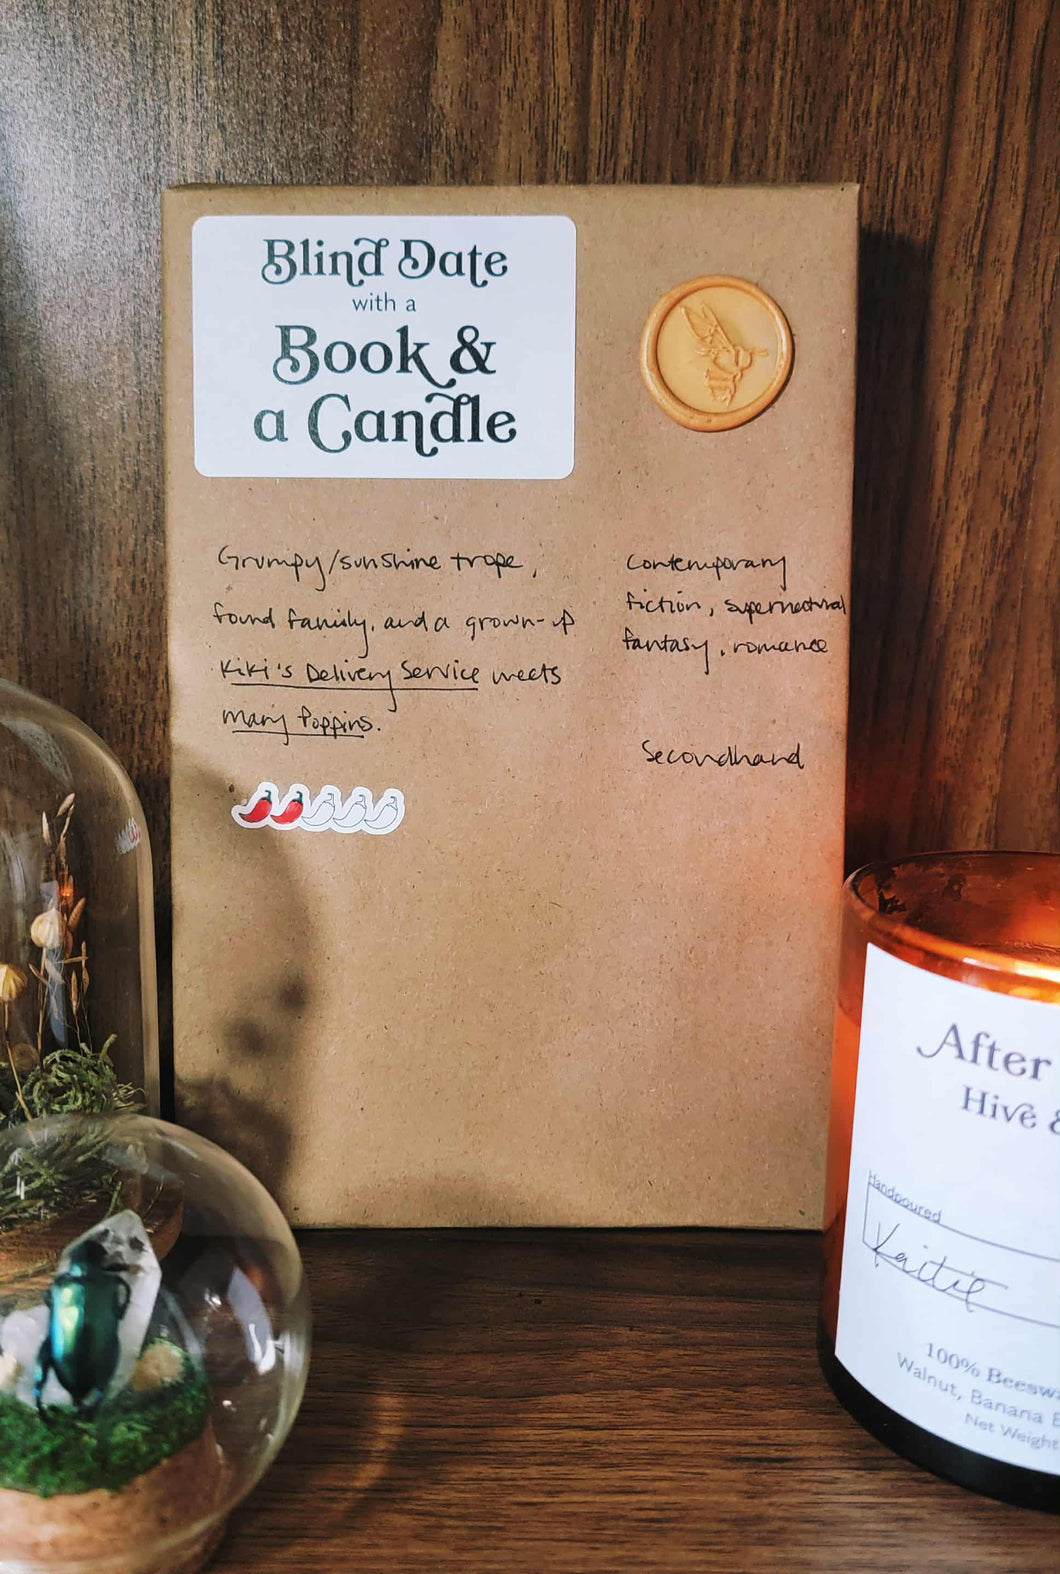 Blind Date
with a
Book &
a Candle
Grumpy/sunshine trope,
found family, and a grown-up
Kiki's Delivery Service meets
Mary Poppins.
Contemporary
fiction, supernatural
fantasy, romance
Secondhand
After
Hive &
Handpoured
Kaitie
100% Beesw
Walnut, Banana
Net Weight